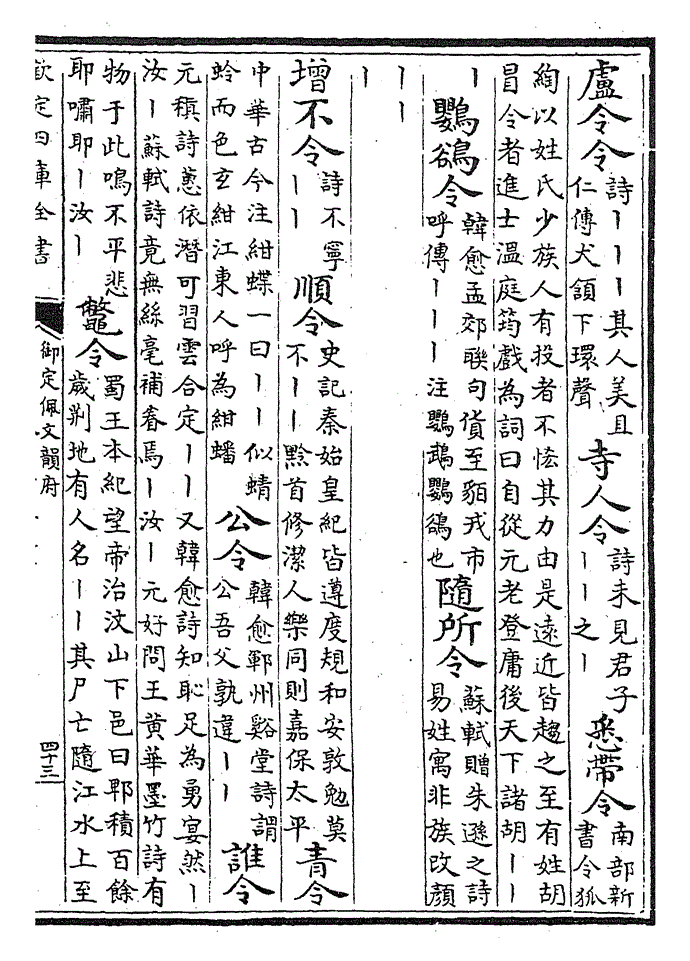 盧令令 詩丨丨丨其人美且仁傳犬頷下環聲 寺人令 詩未見君子丨丨之丨 悉帶令 南部新書令狐
綯以姓氏少族人有投者不恡其力由是遠近皆趨之至有姓胡
冒令者進士溫庭筠戲為詞曰自從元老登庸後天下諸胡丨丨
丨 鸚鵒令 韓愈孟郊聯句貨至貊戎市呼傳丨丨丨注鸚鵡鸚鵒也 隨所令 蘇軾贈朱遜之詩易姓寓非族改顏
丨丨
丨
增不令 詩不寧丨丨 順令 史記秦始皇紀皆遵度規和安敦勉莫不丨丨黔首修潔人樂同則嘉保太平 青令
中華古今注紺蝶一曰丨丨似蜻蛉而色玄紺江東人呼為紺蟠 公令 韓愈鄆州谿堂詩謂公吾父孰違丨丨 誰令
元稹詩蔥依潛可習雲合定丨丨又韓愈詩知恥足為勇宴然丨
汝丨蘇軾詩竟無絲毫補眷焉丨汝丨元好問王黃華墨竹詩有
物于此鳴不平悲耶嘯耶丨汝丨 鼈令 蜀王本紀望帝治汶山下邑曰郫積百餘歲荆地有人名丨丨其尸亡隨江水上至
欽定四庫全書 御定佩文韻府 四十三